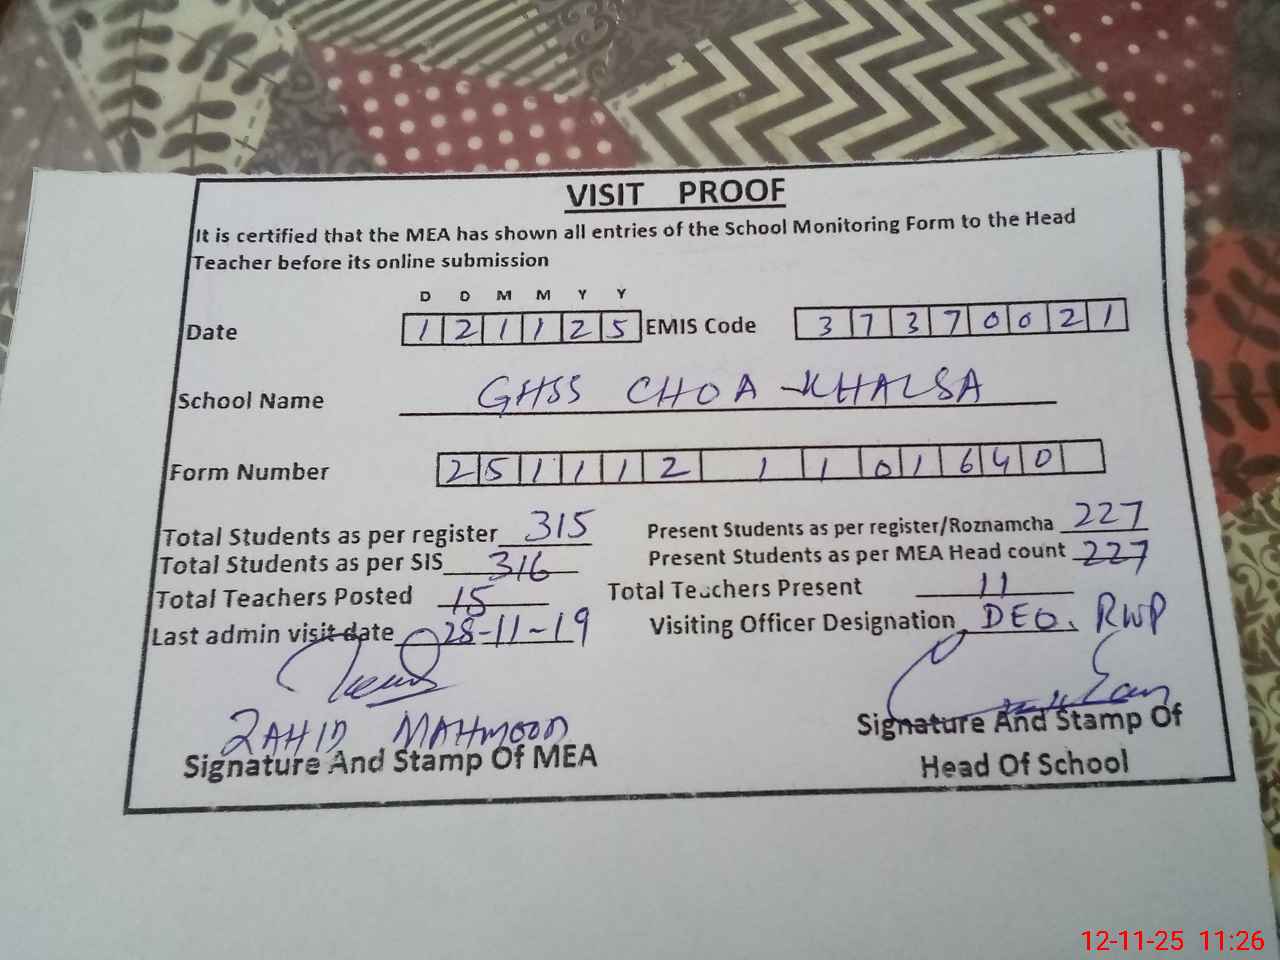 VISIT PROOF
It is certified that the MEA has shown all entries of the School Monitoring Form to the Head
Teacher before its online submission
D D M M Y Y
Date 1 2 1 1 2 5 EMIS Code 3 7 3 7 0 0 2 1
School Name GHSS CHOA KHALSA
Form Number 2 5 1 1 1 2 1 1 0 1 6 4 0
Total Students as per register 315 Present Students as per register/Roznamcha 227
Total Students as per SIS 316 Present Students as per MEA Head count 227
Total Teachers Posted 15 Total Teachers Present 11
Last admin visit date 28-11-19 Visiting Officer Designation DEO. RWP
ZAHID MAHMOOD
Signature And Stamp Of MEA
Signature And Stamp Of
Head Of School
12-11-25 11:26